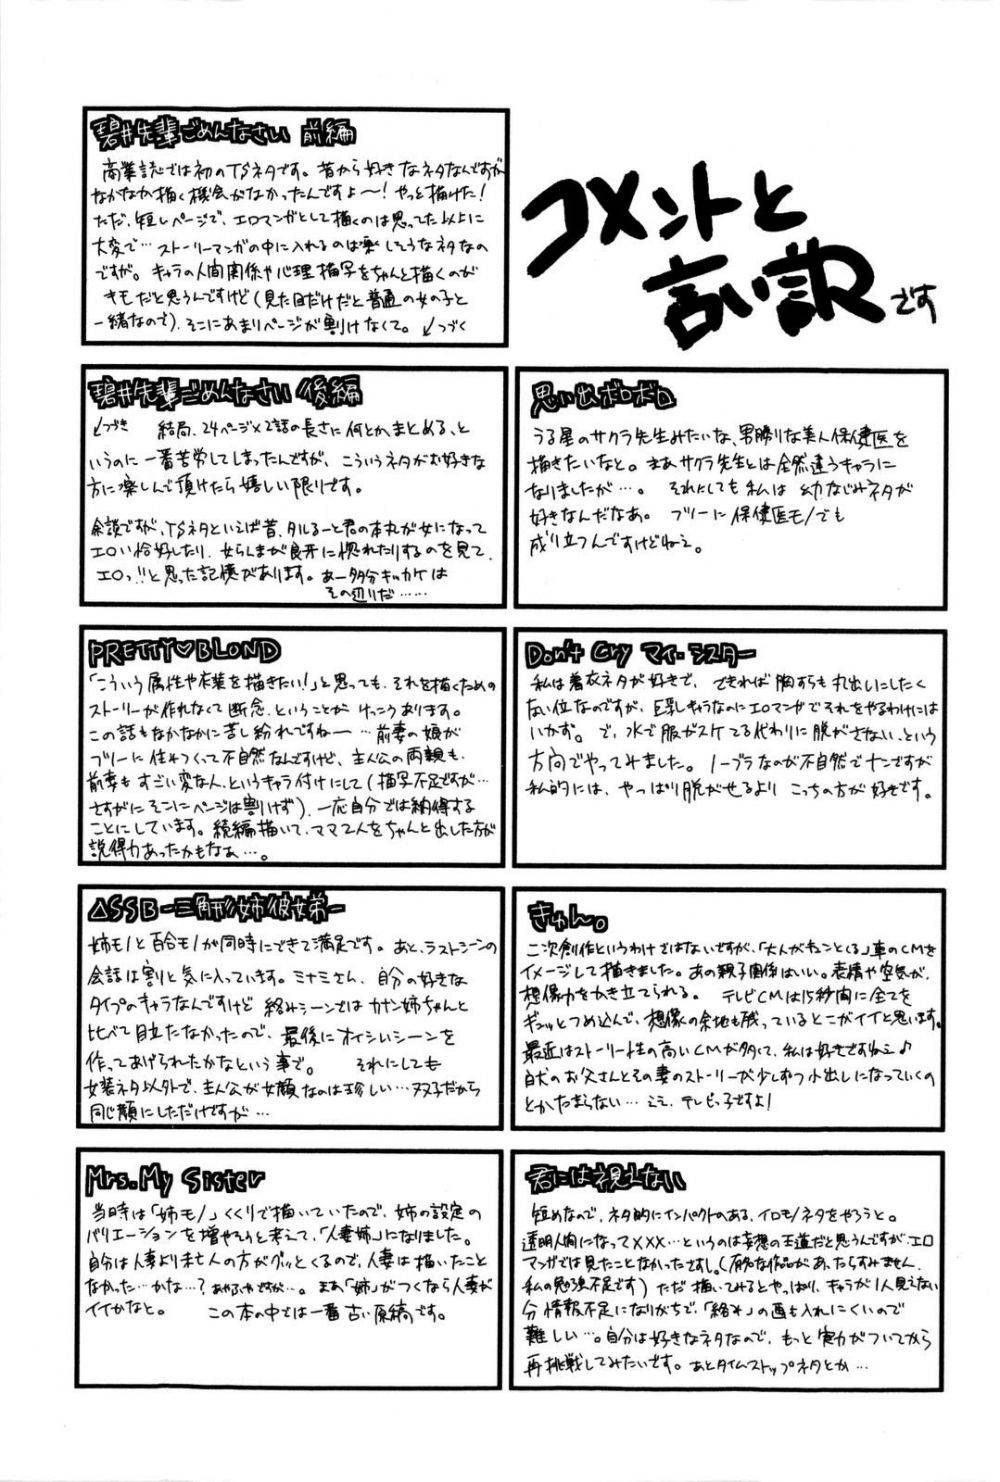 コメントと
言い訳です
碧井先輩ごめんなさい 前編
商業誌では初のTSネタです。昔から好きなネタなんですが
なかなか描く機会がなかったんですよ〜!やっと描けた!
ただ、短しページで、エロマンガとして描くのは思ってた以上に
大変で…ストーリーマンガの中に入れるのは楽しそうなネタなの
ですが。キャラの人間関係や心理描写をちゃんと描くのが
キモだと思うんですけど(見た目だけだと普通の女の子と
一緒なので)、そこにあまりページが割けなくて。↙つづく
碧井先輩ごめんなさい 後編
↙つづき 結局、24ページ×2話の長さに何とかまとめる、と
いうのに一番苦労してしまったんですが、こういうネタがお好きな
方に楽しんで頂けたら嬉しい限りです。
余談ですが、TSネタといえば昔、タルるーと君の本丸が女になって
エロい恰好したり、女らんまが良牙に惚れたりするのを見て、
エロっ!!と思った記憶があります。あー多分キッカケは
その辺りだ……
思い出ボロボロ
うる星のサクラ先生みたいな、男勝りな美人保健医を
描きたいなと。まあサクラ先生とは全然違うキャラに
なりましたが…。それにしても私は幼なじみネタが
好きなんだなあ。フツーに保健医モノでも
成り立つんですけどねェ。
PRETTY♡BLOND
「こういう属性や衣装を描きたい!」と思っても、それを描くための
ストーリーが作れなくて断念、ということがけっこうあります。
この話もなかなかに苦し紛れですねー…前妻の娘が
フツーに住みつくって不自然なんですけど、主人公の両親も、
前妻もすごい変な人、というキャラ付けにして(描写不足ですが…
さすがにそこにページは割けず)、一応自分では納得する
ことにしています。続編描いて、ママ2人をちゃんと出した方が
説得力あったかもなぁ…。
Don't Cry マイ・シスター
私は着衣ネタが好きで、できれば胸すらも丸出しにしたく
ない位なのですが、巨乳キャラなのにエロマンガでそれをやるわけには
いかず。で、水で服がスケてる代わりに脱がさない、という
方向でやってみました。ノーブラなのが不自然でナンですが
私的には、やっぱり脱がせるよりこっちの方が好きです。
△SSB-三角形姉彼女弟-
姉モノと百合モノが同時にできて満足です。あと、ラストシーンの
会話は割と気に入っています。ミナミさん、自分の好きな
タイプのキャラなんですけど 絡みシーンではカナン姉ちゃんと
比べて目立たなかったので、最後にオイシイシーンを
作ってあげられたかなという事で。それにしても
女装ネタ以外で、主人公が女顔なのは珍しい…双子だから
同じ顔にしただけですが…
きゅん。
二次創作というわけではないですが、「大人がキュンとくる」車のCMを
イメージして描きました。あの親子関係はいい。表情や空気が、
想像力をかき立てられる。テレビCMは15秒間に全てを
ギュッとつめ込んで、想像の余地も残っているとこがイイと思います。
最近はストーリー性の高いCMが多くて、私は好きですねェ♪
白犬のお父さんとその妻のストーリーが少しずつ小出しになっていくの
とかたまらない…ええ、テレビっ子ですよ!
Mrs. My Sister
当時は「姉モノ」くくりで描いていたので、姉の設定の
バリエーションを増やそうと考えて、「人妻姉」になりました。
自分は人妻より未亡人の方がグッとくるので、人妻は描いたこと
なかった…かな…?あやふやですが…。まあ「姉」がつくなら人妻が
イイかなと。この本の中では一番古い原稿です。
君には視えない
短めなので、ネタ的にインパクトのある、イロモノネタをやろうと。
透明人間になって×××…というのは妄想の王道だと思うんですが、エロ
マンガでは見たことなかったですし。(有名な作品があったらすみません、
私の勉強不足です)ただ描いてみるとやっぱり、キャラが1人見えない
分情報不足になりがちで、「絡み」の画も入れにくいので
難しい…。自分は好きなネタなので、もっと実力がついてから
再挑戦してみたいです。あとタイムストップネタとか…